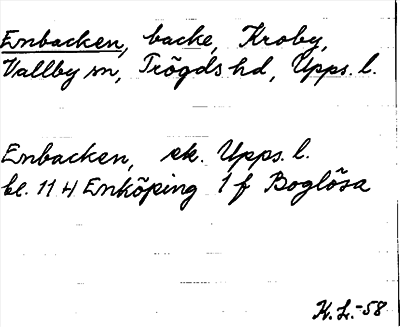 Enbacken, backe, Kroby,
Vallby sn, Trögds hd, Upps. l.
Enbacken, ek. Upps. l.
bl. 11 H Enköping 1 f Boglösa
K. L. -58